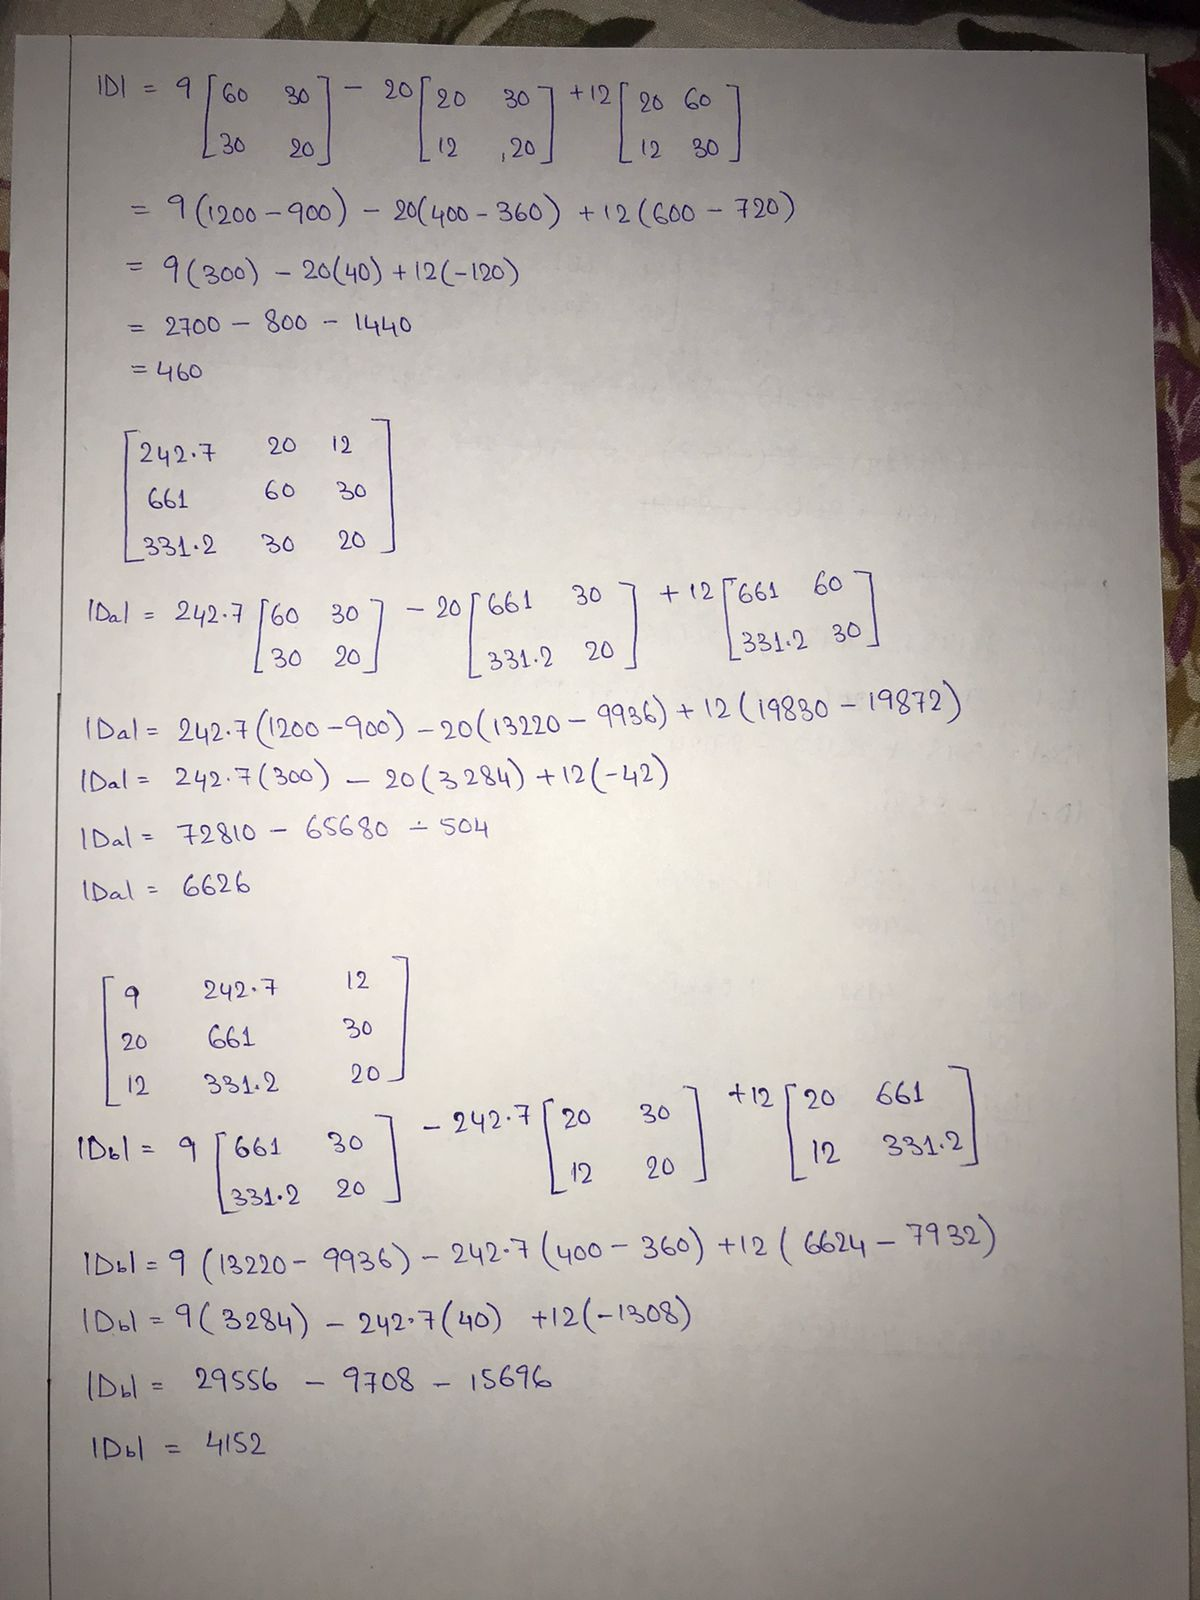 |D| = 9 [60 30 - 20 [20 30 +12 [20 60
30 20] 12 ,20] 12 30]
= 9(1200-900) - 20(400-360) +12(600-720)
= 9(300) - 20(40) +12(-120)
= 2700 - 800 - 1440
= 460
[242.7 20 12
661 60 30
331.2 30 20]
|Da| = 242.7 [60 30 - 20 [661 30 +12 [661 60
30 20] 331.2 20] 331.2 30]
|Da| = 242.7(1200-900) - 20(13220-9936) + 12(19830-19872)
|Da| = 242.7(300) - 20(3284) +12(-42)
|Da| = 72810 - 65680 - 504
|Da| = 6626
[9 242.7 12
20 661 30
12 331.2 20]
|Db| = 9 [661 30 - 242.7 [20 30 +12 [20 661
331.2 20] 12 20] 12 331.2]
|Db| = 9 (13220-9936) - 242.7(400-360) +12(6624-7932)
|Db| = 9(3284) - 242.7(40) +12(-1308)
|Db| = 29556 - 9708 - 15696
|Db| = 4152